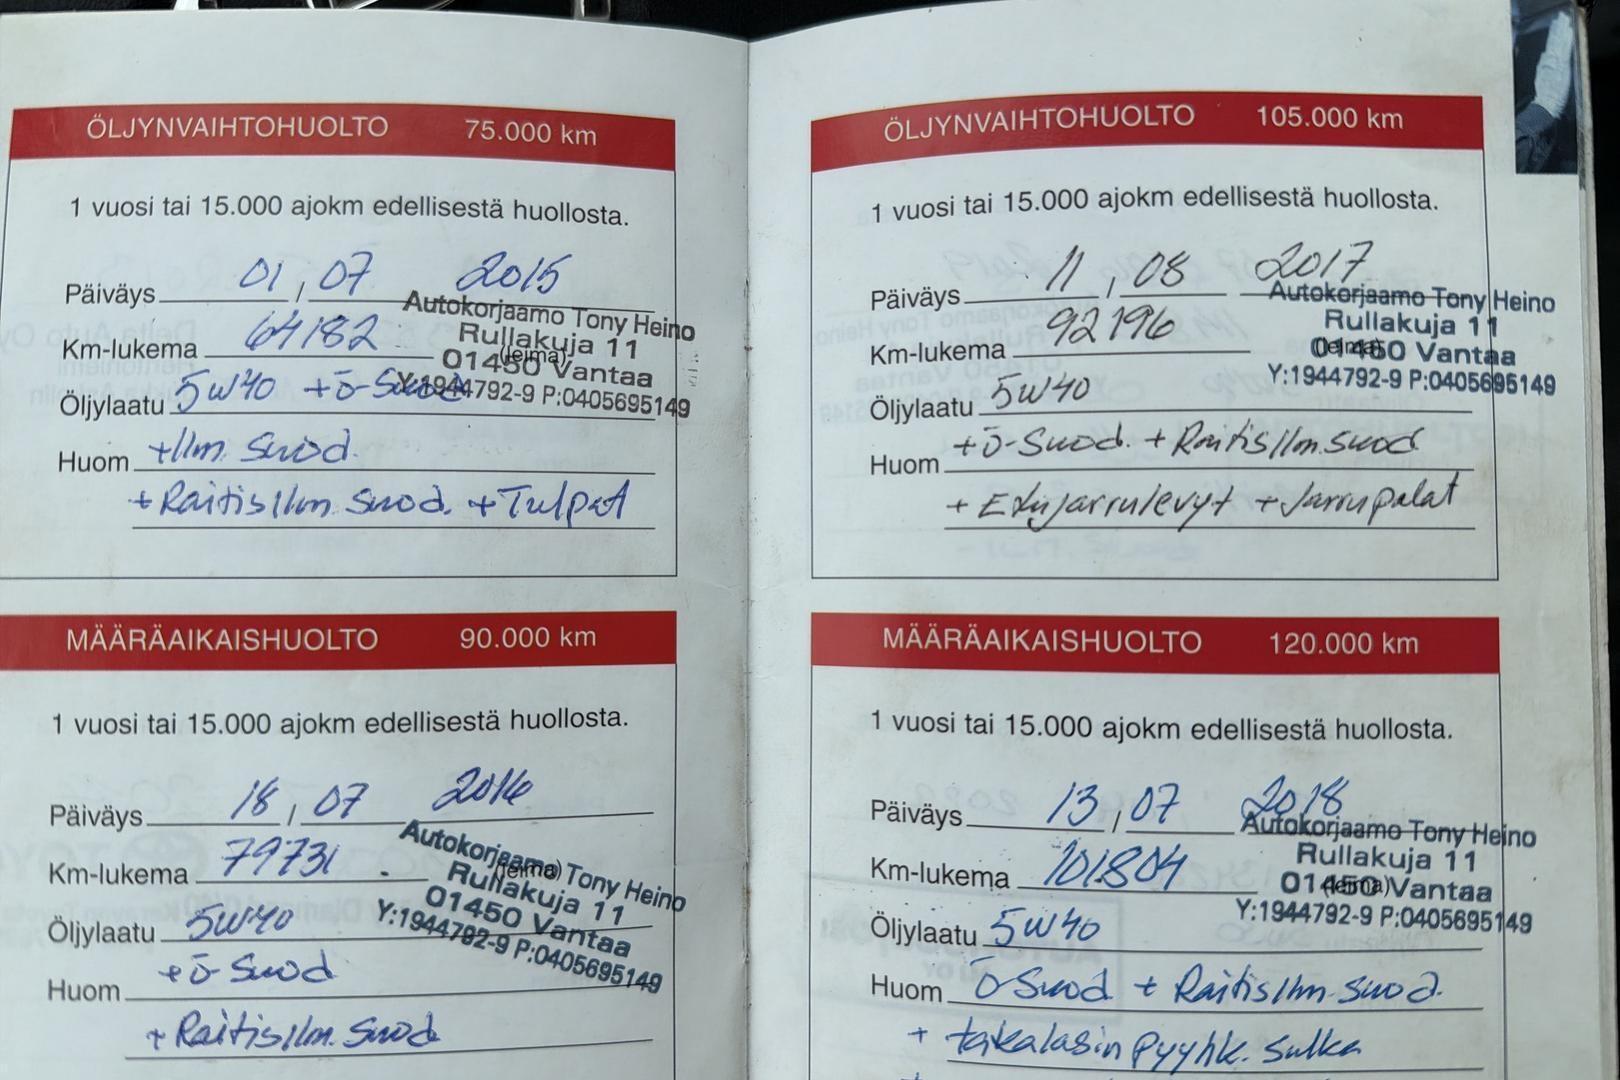 ÖLJYNVAIHTOHUOLTO 75.000 km
1 vuosi tai 15.000 ajokm edellisestä huollosta.
Päiväys 01 , 07 2015
Autokorjaamo Tony Heino
Km-lukema 64182
Rullakuja 11
(leima)
01450 Vantaa
Öljylaatu 5W40 +ö-Suod
Y:1944792-9 P:0405695149
Huom +Ilm. Suod.
+ Raitisilm. Suod. + Tulpat
MÄÄRÄAIKAISHUOLTO 90.000 km
1 vuosi tai 15.000 ajokm edellisestä huollosta.
Päiväys 18 , 07 2016
Autokorjaamo Tony Heino
Km-lukema 79731
(leima)
Rullakuja 11
01450 Vantaa
Öljylaatu 5W40
Y:1944792-9 P:0405695149
Huom +ö-Suod
+ Raitisilm. Suod
ÖLJYNVAIHTOHUOLTO 105.000 km
1 vuosi tai 15.000 ajokm edellisestä huollosta.
Päiväys 11 , 08 2017
Autokorjaamo Tony Heino
Km-lukema 92196
Rullakuja 11
(leima)
01450 Vantaa
Y:1944792-9 P:0405695149
Öljylaatu 5W40
Huom +ö-Suod. + Raitisilm.suod
+ Etujarrulevyt + Jarrupalat
MÄÄRÄAIKAISHUOLTO 120.000 km
1 vuosi tai 15.000 ajokm edellisestä huollosta.
Päiväys 13 , 07 2018
Autokorjaamo Tony Heino
Km-lukema 101804
Rullakuja 11
(leima)
01450 Vantaa
Y:1944792-9 P:0405695149
Öljylaatu 5W40
Huom ö-Suod + Raitisilm. Suod.
+ takalasin pyyhk. sulka